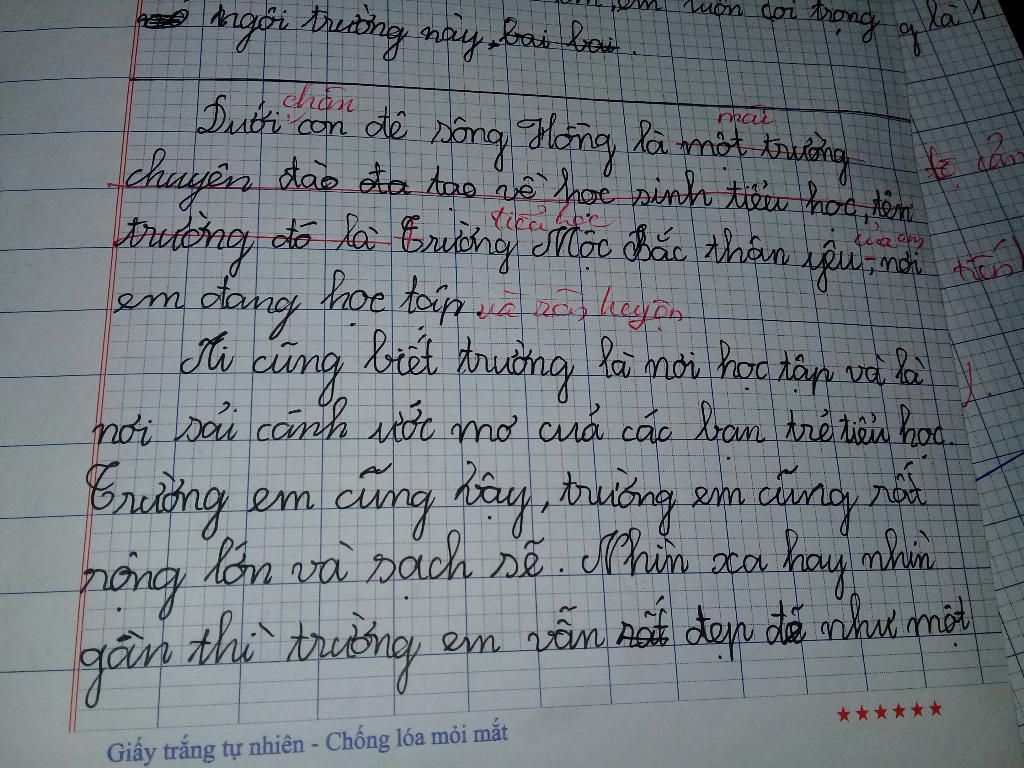 em luôn coi trọng
ngôi trường này, bai bai.
g là 1
chân
mái
Dưới con đê sông Hồng là một trường
chuyên đào đa tao về học sinh tiểu học, tên
tiểu học
của em
trường đó là Trường Mộc Bắc thân yêu, nơi
em đang học tập và rèn luyện
Ai cũng biết trường là nơi học tập và là
nơi sải cánh ước mơ cuả các bạn trẻ tiểu học.
Trường em cũng vậy, trường em cũng rất
rộng lớn và sạch sẽ. Nhìn xa hay nhìn
gần thì trường em vẫn rất đẹp đẽ như một
Giấy trắng tự nhiên - Chống lóa mỏi mắt